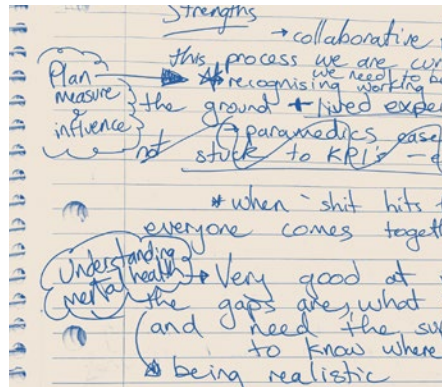 Strengths
→ collaborative
this process we are cur
we need to be
Plan measure & influence
* recognising working
the ground + lived expe
paramedics ease
not stuck to KPI's - e
* when 'shit hits t
everyone comes togeth
Understanding mental health
Very good at
the gaps are, what
(and need the su
to know where
being realistic